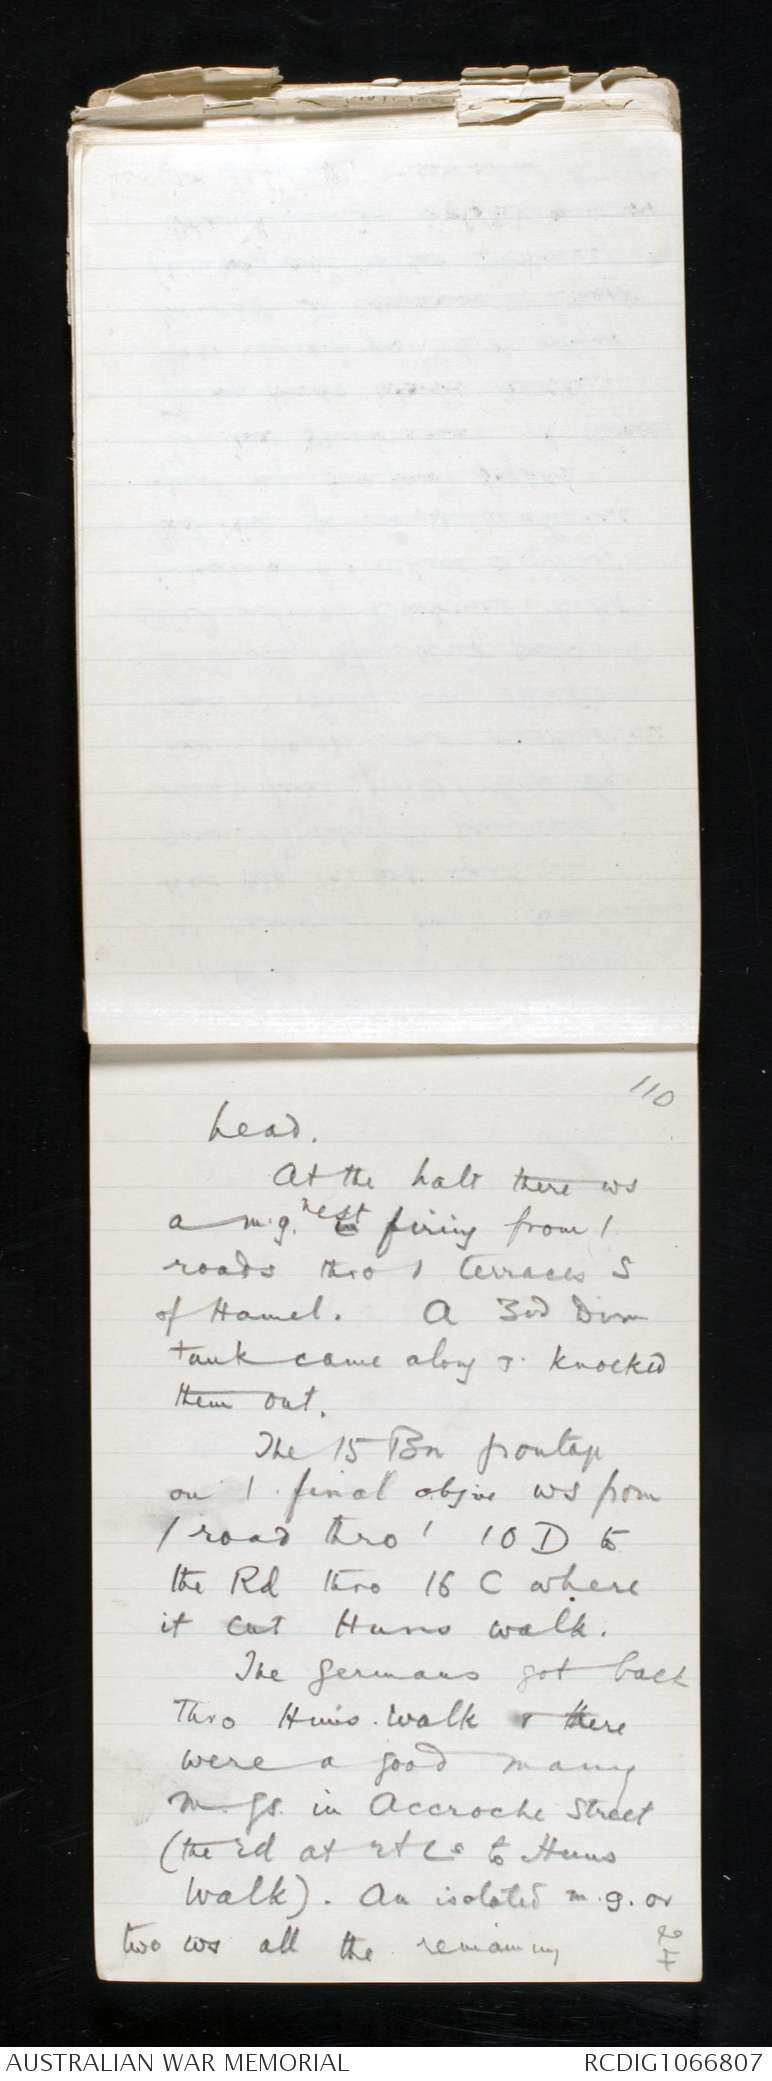 110
head.
At the halt there ws
a m.g. nest firing from /
roads thro / terraces S
of Hamel. A 3rd Divn
tank came along & knocked
them out.
The 15 Bn frontage
on / final objive ws from
/ road thro' 10 D to
the Rd thro 16 C where
it cut Huns walk.
The Germans got back
Thro Huns. Walk & there
were a good many
m.gs. in Accroche Street
(the rd at rt Ls to Huns
Walk). An isolated m.g. or
two ws all the remaining
AUSTRALIAN WAR MEMORIAL
RCDIG1066807